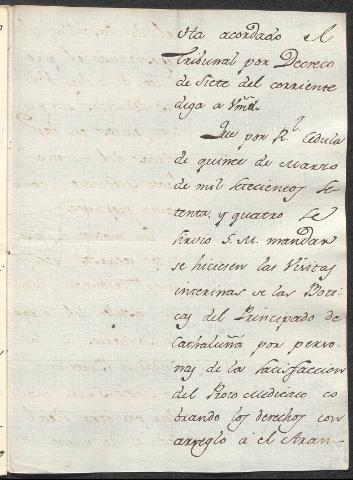 Ha acordado el
Tribunal por Decreto
de Siete del corriente
diga a Vmd.
Que por Rl. Cedula
de quince de Marzo
de mil setecientos se-
tenta, y quatro se
sirvio S. M. mandar
se hiciesen las Visitas
interinas de las Boti-
cas del Principado de
Cathaluña por perso-
nas de la satisfaccion
del Proto Medicato co
brando los derechos con
arreglo â el Aran-